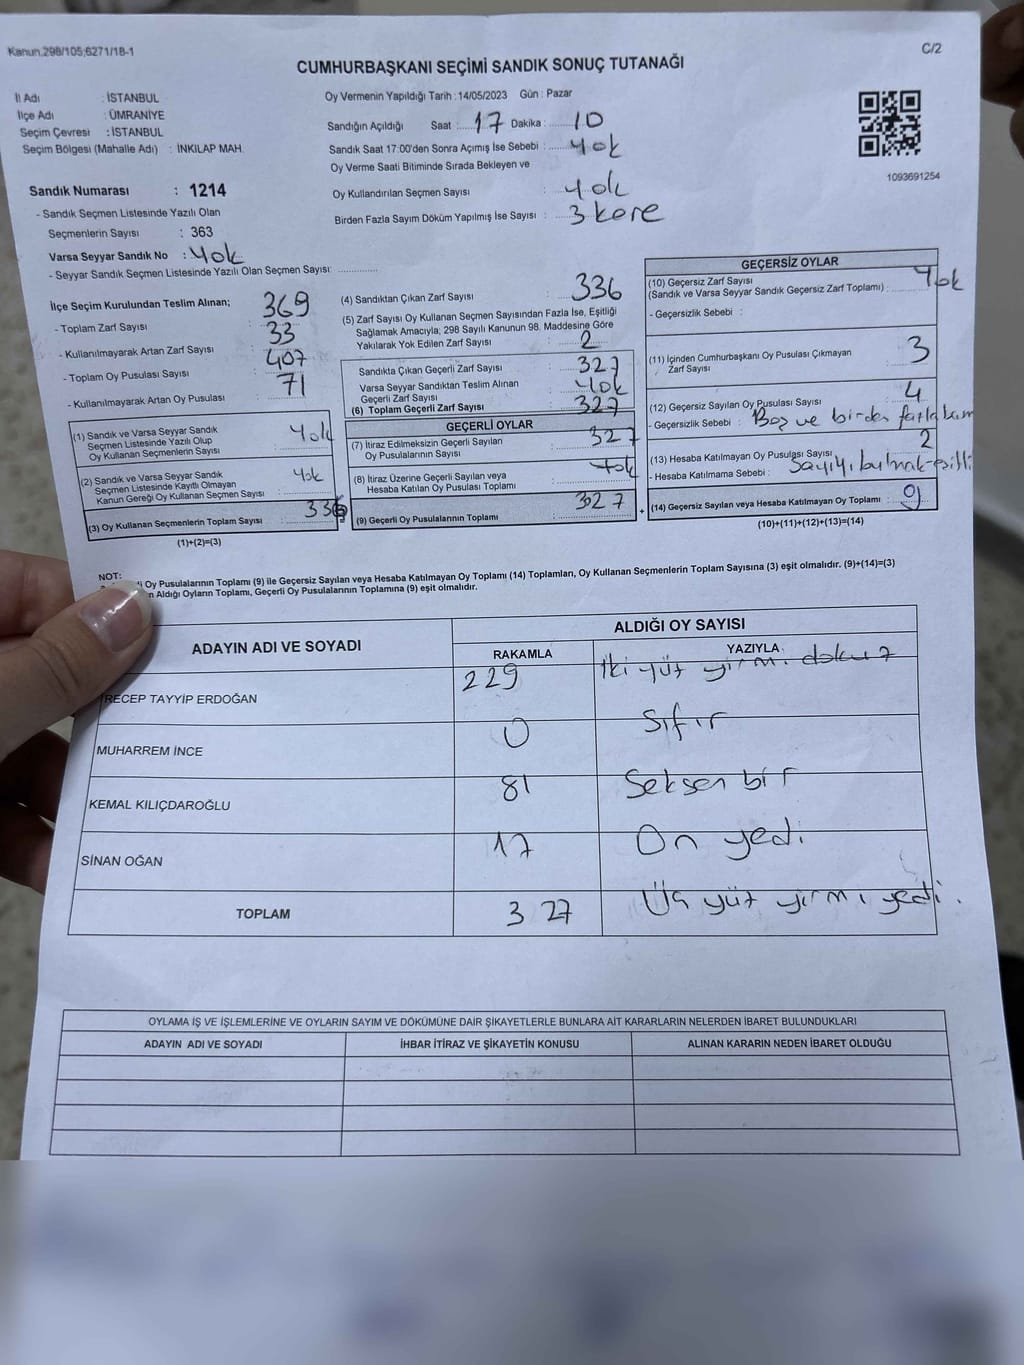 Kanun.298/105;6271/18-1
C/2
CUMHURBAŞKANI SEÇİMİ SANDIK SONUÇ TUTANAĞI
İl Adı : İSTANBUL
İlçe Adı : ÜMRANİYE
Seçim Çevresi : İSTANBUL
Seçim Bölgesi (Mahalle Adı) : İNKILAP MAH.
Sandık Numarası : 1214
- Sandık Seçmen Listesinde Yazılı Olan
Seçmenlerin Sayısı : 363
Varsa Seyyar Sandık No : Yok
- Seyyar Sandık Seçmen Listesinde Yazılı Olan Seçmen Sayısı: ..................
Oy Vermenin Yapıldığı Tarih : 14/05/2023 Gün : Pazar
Sandığın Açıldığı Saat : 17 Dakika : 10
Sandık Saat 17:00'den Sonra Açımış İse Sebebi : Yok
Oy Verme Saati Bitiminde Sırada Bekleyen ve
Oy Kullandırılan Seçmen Sayısı : Yok
Birden Fazla Sayım Döküm Yapılmış İse Sayısı : 3 kere
1093691254
İlçe Seçim Kurulundan Teslim Alınan;
- Toplam Zarf Sayısı : 369
- Kullanılmayarak Artan Zarf Sayısı : 33
- Toplam Oy Pusulası Sayısı : 407
- Kullanılmayarak Artan Oy Pusulası : 71
(1) Sandık ve Varsa Seyyar Sandık
Seçmen Listesinde Yazılı Olup
Oy Kullanan Seçmenlerin Sayısı : Yok
(2) Sandık ve Varsa Seyyar Sandık
Seçmen Listesinde Kayıtlı Olmayan
Kanun Gereği Oy Kullanan Seçmen Sayısı : Yok
(3) Oy Kullanan Seçmenlerin Toplam Sayısı : 336
(1)+(2)=(3)
(4) Sandıktan Çıkan Zarf Sayısı : 336
(5) Zarf Sayısı Oy Kullanan Seçmen Sayısından Fazla İse, Eşitliği
Sağlamak Amacıyla; 298 Sayılı Kanunun 98. Maddesine Göre
Yakılarak Yok Edilen Zarf Sayısı : 2
Sandıkta Çıkan Geçerli Zarf Sayısı : 327
Varsa Seyyar Sandıktan Teslim Alınan
Geçerli Zarf Sayısı : Yok
(6) Toplam Geçerli Zarf Sayısı : 327
GEÇERLİ OYLAR
(7) İtiraz Edilmeksizin Geçerli Sayılan
Oy Pusulalarının Sayısı : 327
(8) İtiraz Üzerine Geçerli Sayılan veya
Hesaba Katılan Oy Pusulası Toplamı : Yok
(9) Geçerli Oy Pusulalarının Toplamı : 327
GEÇERSİZ OYLAR
(10) Geçersiz Zarf Sayısı
(Sandık ve Varsa Seyyar Sandık Geçersiz Zarf Toplamı) : Yok
- Geçersizlik Sebebi :
(11) İçinden Cumhurbaşkanı Oy Pusulası Çıkmayan
Zarf Sayısı : 3
(12) Geçersiz Sayılan Oy Pusulası Sayısı : 4
- Geçersizlik Sebebi : Boş ve birden fazla
(13) Hesaba Katılmayan Oy Pusulası Sayısı : 2
- Hesaba Katılmama Sebebi : Sayıyı
+ (14) Geçersiz Sayılan veya Hesaba Katılmayan Oy Toplamı : 9
(10)+(11)+(12)+(13)=(14)
NOT:
Oy Pusulalarının Toplamı (9) ile Geçersiz Sayılan veya Hesaba Katılmayan Oy Toplamı (14) Toplamları, Oy Kullanan Seçmenlerin Toplam Sayısına (3) eşit olmalıdır. (9)+(14)=(3)
Aldığı Oyların Toplamı, Geçerli Oy Pusulalarının Toplamına (9) eşit olmalıdır.
ADAYIN ADI VE SOYADI ALDIĞI OY SAYISI
RAKAMLA YAZIYLA
RECEP TAYYİP ERDOĞAN 229 İki yüz yirmi dokuz
MUHARREM İNCE 0 Sıfır
KEMAL KILIÇDAROĞLU 81 Seksen bir
SİNAN OĞAN 17 On yedi
TOPLAM 327 Üç yüz yirmi yedi.
OYLAMA İŞ VE İŞLEMLERİNE VE OYLARIN SAYIM VE DÖKÜMÜNE DAİR ŞİKAYETLERLE BUNLARA AİT KARARLARIN NELERDEN İBARET BULUNDUKLARI
ADAYIN ADI VE SOYADI İHBAR İTİRAZ VE ŞİKAYETİN KONUSU ALINAN KARARIN NEDEN İBARET OLDUĞU